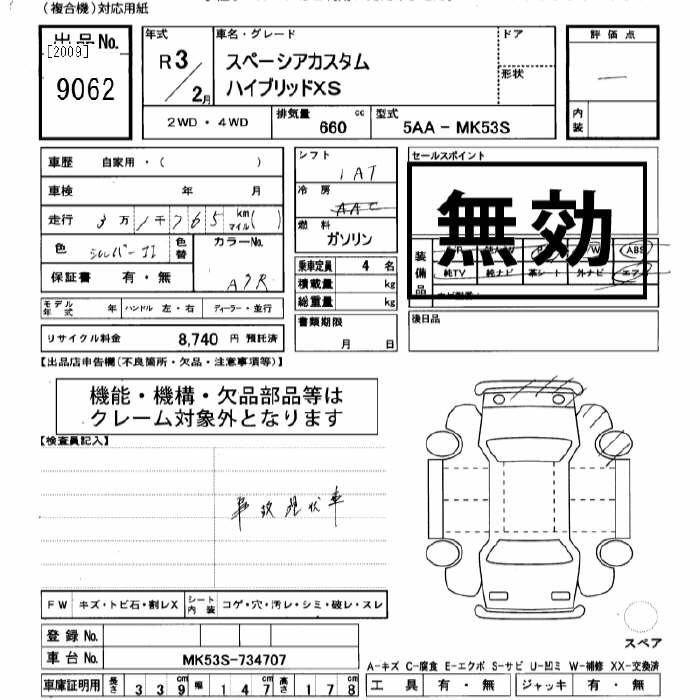 (複合機)対応用紙
出品No.
[2009]
9062
年式
R3/2月
車名・グレード
スペーシアカスタム
ハイブリッドXS
ドア
形状
評価点
内装
2WD・4WD
排気量
660 cc
型式
5AA - MK53S
車歴 自家用・( )
車検 年 月
走行 3万1千765 km マイル( )
色 シルバーII 色替
カラーNo.
保証書 有・無
モデル年式 年 ハンドル 左・右 ディーラー・並行
リサイクル料金 8,740 円 預託済
シフト
IAT
冷房
AAC
燃料
ガソリン
乗車定員 4 名
積載量 kg
総重量 kg
書類期限
月 日
セールスポイント
無効
装備品
ABS
純TV 純ナビ 革シート 外ナビ エア
後日品
【出品店申告欄(不良箇所・欠品・注意事項等)】
機能・機構・欠品部品等は
クレーム対象外となります
【検査員記入】
事故現状車
FW キズ・トビ石・割レX シート内装 コゲ・穴・汚レ・シミ・破レ・スレ
スペア
登録No.
車台No. MK53S-734707
A-キズ C-腐食 E-エクボ S-サビ U-凹ミ W-補修 XX-交換済
車庫証明用 長さ 339cm 幅 147cm 高さ 178cm
工具 有・無 ジャッキ 有・無